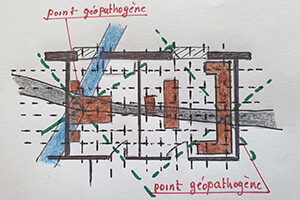 point géopathogène
point géopathogène